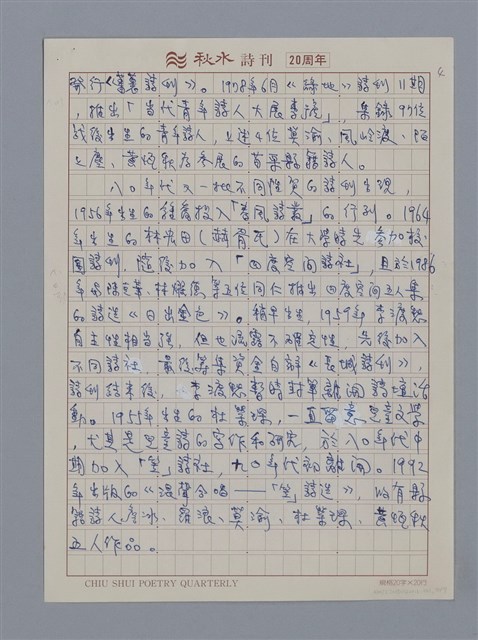 秋水詩刊 20周年
4
發行《萬萬詩刊》。1978年6月《綠地》詩刊11期
,推出「當代青年詩人大展專號」,集錄97位
戰後出生的青年詩人,上述4位莫渝、風岭渡、陌
上塵、黃恆秋亦參展的苗栗縣籍詩人。
八〇年代又一批不同性質的詩刊出現,
1956年出生的 投入「春風詩叢」的行列。1964
年出生的林宏田(赫胥氏)在大學時先參加校
園詩刊,隨後加入「四度空間詩社」,且於1986
年與陳克華、林燿德等五位同仁推出四度空間五人集
的詩選《日出金色》。稍早出生,1959年李渡愁
自主性相當強,但也流露不確定性,先後加入
不同詩社,最後籌集資金自辦《長城詩刊》,
詩刊結束後,李渡愁暫時封筆離開詩壇活
動。1955年出生的杜榮琛,一直留意兒童文學
,尤其是兒童詩的寫作和研究,於八〇年代中
期加入「笠」詩社,九〇年代初離開。1992
年出版的《混聲合唱——「笠」詩選》,收有縣
籍詩人詹冰、羅浪、莫渝、杜榮琛、黃恆秋
五人作品。
CHIU SHUI POETRY QUARTERLY